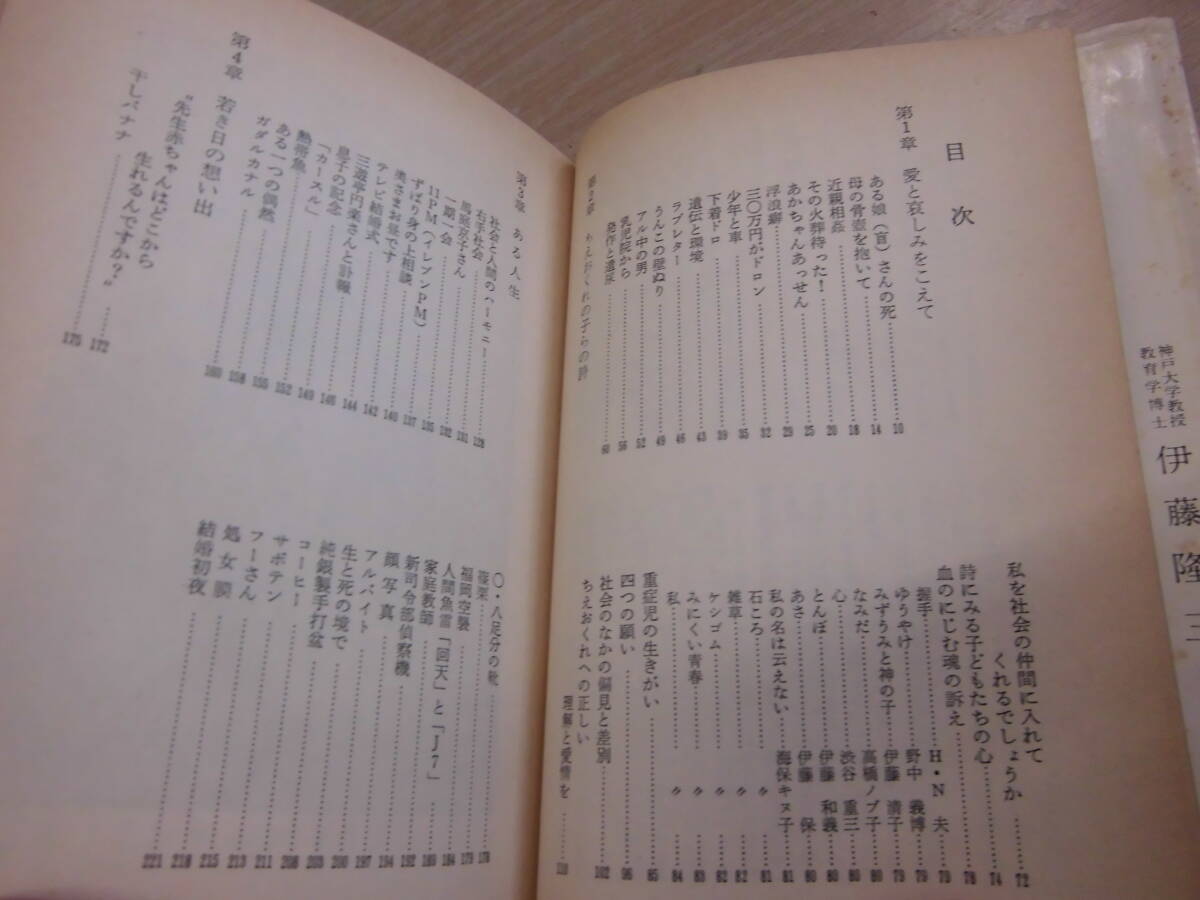 目次
第1章 愛と哀しみをこえて
ある娘(盲)さんの死 10
母の骨壺を抱いて 14
近親相姦 18
その火葬待った! 20
あかちゃんあっせん 25
浮浪癖 29
三〇万円がドロン 32
少年と車 35
下着ドロ 39
遺伝と環境 43
ラブレター 46
うんこの壁ぬり 49
アル中の男 52
乳児院から 56
発作と遺尿 60
第2章 ちえおくれの子らの詩
私を社会の仲間に入れて
くれるでしょうか 72
詩にみる子どもたちの心 74
血のにじむ魂の訴え 78
握手 H・N夫 79
ゆうやけ 野中義博 79
みずうみと神の子 伊藤清子 79
なみだ 高橋ノブ子 80
心 渋谷重三 80
とんぼ 伊藤和義 80
あさ 伊藤保 80
私の名は云えない 海保キヌ子 81
石ころ 〃 81
雑草 〃 82
ケシゴム 〃 82
みにくい青春 〃 83
私 〃 84
重症児の生きがい 85
四つの願い 96
社会のなかの偏見と差別 102
ちえおくれへの正しい
理解と愛情を 110
第3章 ある人生
社会と人間のハーモニー 128
右手社会 131
馬庭京子さん 132
一期一会 135
11PM(イレブンPM) 137
ずばり身の上相談 140
奥さまお昼です 142
テレビ結婚式 144
三遊亭円楽さんと訃報 146
息子の記念 149
「カースル」 152
熱帯魚 155
ある一つの偶然 158
ガダルカナル 160
第4章 若き日の想い出
“先生赤ちゃんはどこから
生れるんですか?” 172
干しバナナ 175
〇・八足分の靴 178
篠栗 179
福岡空襲 184
人間魚雷「回天」と「J7」 189
家庭教師 192
新司令部偵察機 194
顔写真 197
アルバイト 200
生と死の境で 203
純銀製手打盆 208
コーヒー 211
サボテン 213
フーさん 215
処女膜 218
結婚初夜 221
神戸大学教授
教育学博士
伊藤隆二